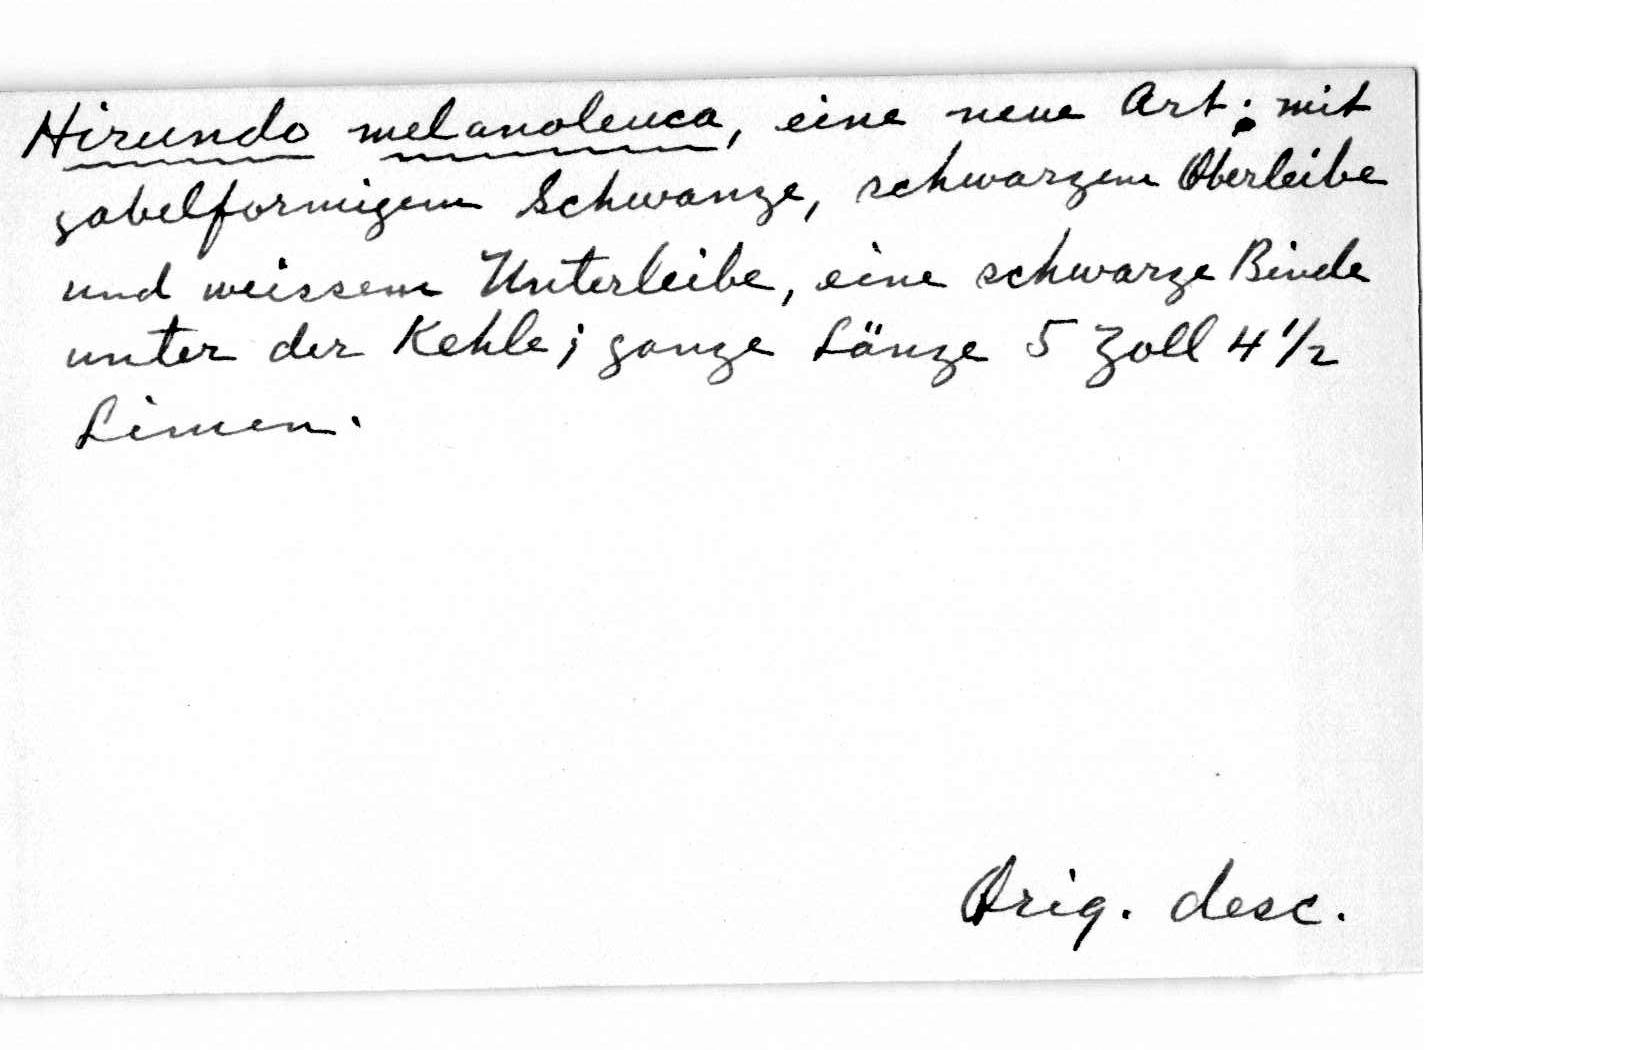 Hirundo melanoleuca, eine neue Art; mit
gabelformigem Schwanze, schwarzem Oberleibe
und weissem Unterleibe, eine schwarze Binde
unter der Kehle; ganze Länge 5 Zoll 4 1/2
Linien.
Orig. desc.